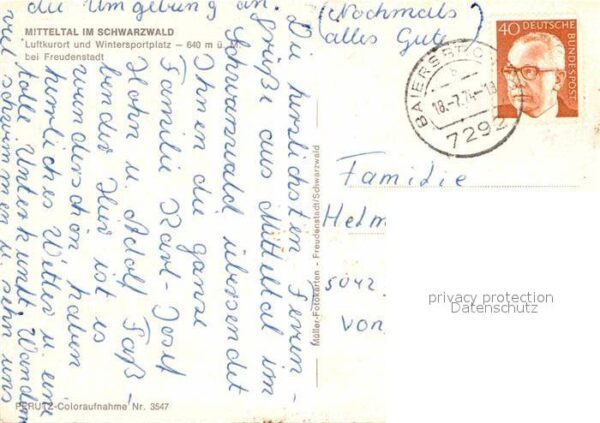 MITTELTAL IM SCHWARZWALD
Luftkurort und Wintersportplatz — 640 m ü. M.
bei Freudenstadt
Die herzlichsten Ferien-
grüße aus Mitteltal im
Schwarzwald übersendet
Ihnen die ganze
Familie Karl-Josef
Hohn u. Adolf Faß-
bender Hier ist es
wunderschön, haben
herrliches Wetter u. eine
tolle Unterkunft Wandern
viel schwimmen u. sehn uns
die Umgebung an.
(Nochmals
alles Gute)
40 DEUTSCHE
BUNDESPOST
BAIERSBRONN
b
18.-7.74-18
7292
Familie
Helm
5042
von
privacy protection
Datenschutz
Müller-Fotokarten - Freudenstadt/Schwarzwald
PERUTZ-Coloraufnahme Nr. 3547